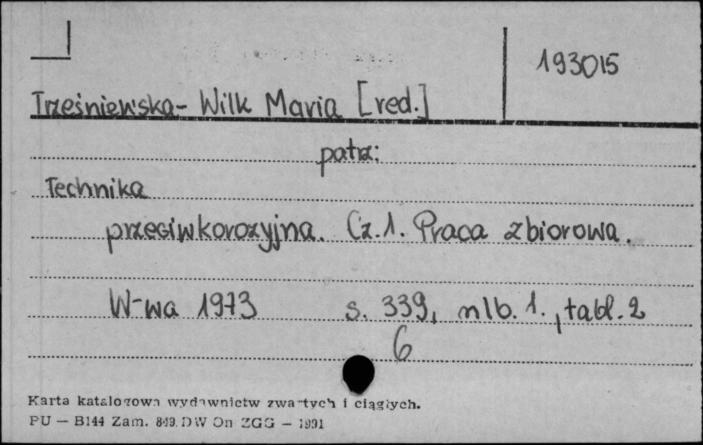 193015
Trześniewska-Wilk Maria [red.]
patrz:
Technika
przeciwkorozyjna. Cz.1. Praca zbiorowa.
W-wa 1973 s. 339, nlb. 1., tabl. 2
6
Karta katalogowa wydawnictw zwartych i ciągłych.
PU — B144 Zam. 849. DW On ZGG — 1991